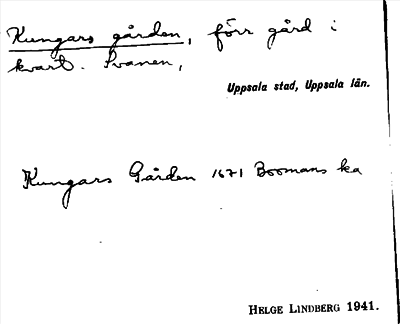 Kungars gården, förr gård i
kvart. Svanen,
Uppsala stad, Uppsala län.
Kungars Gården 1671 Boomans ka
HELGE LINDBERG 1941.